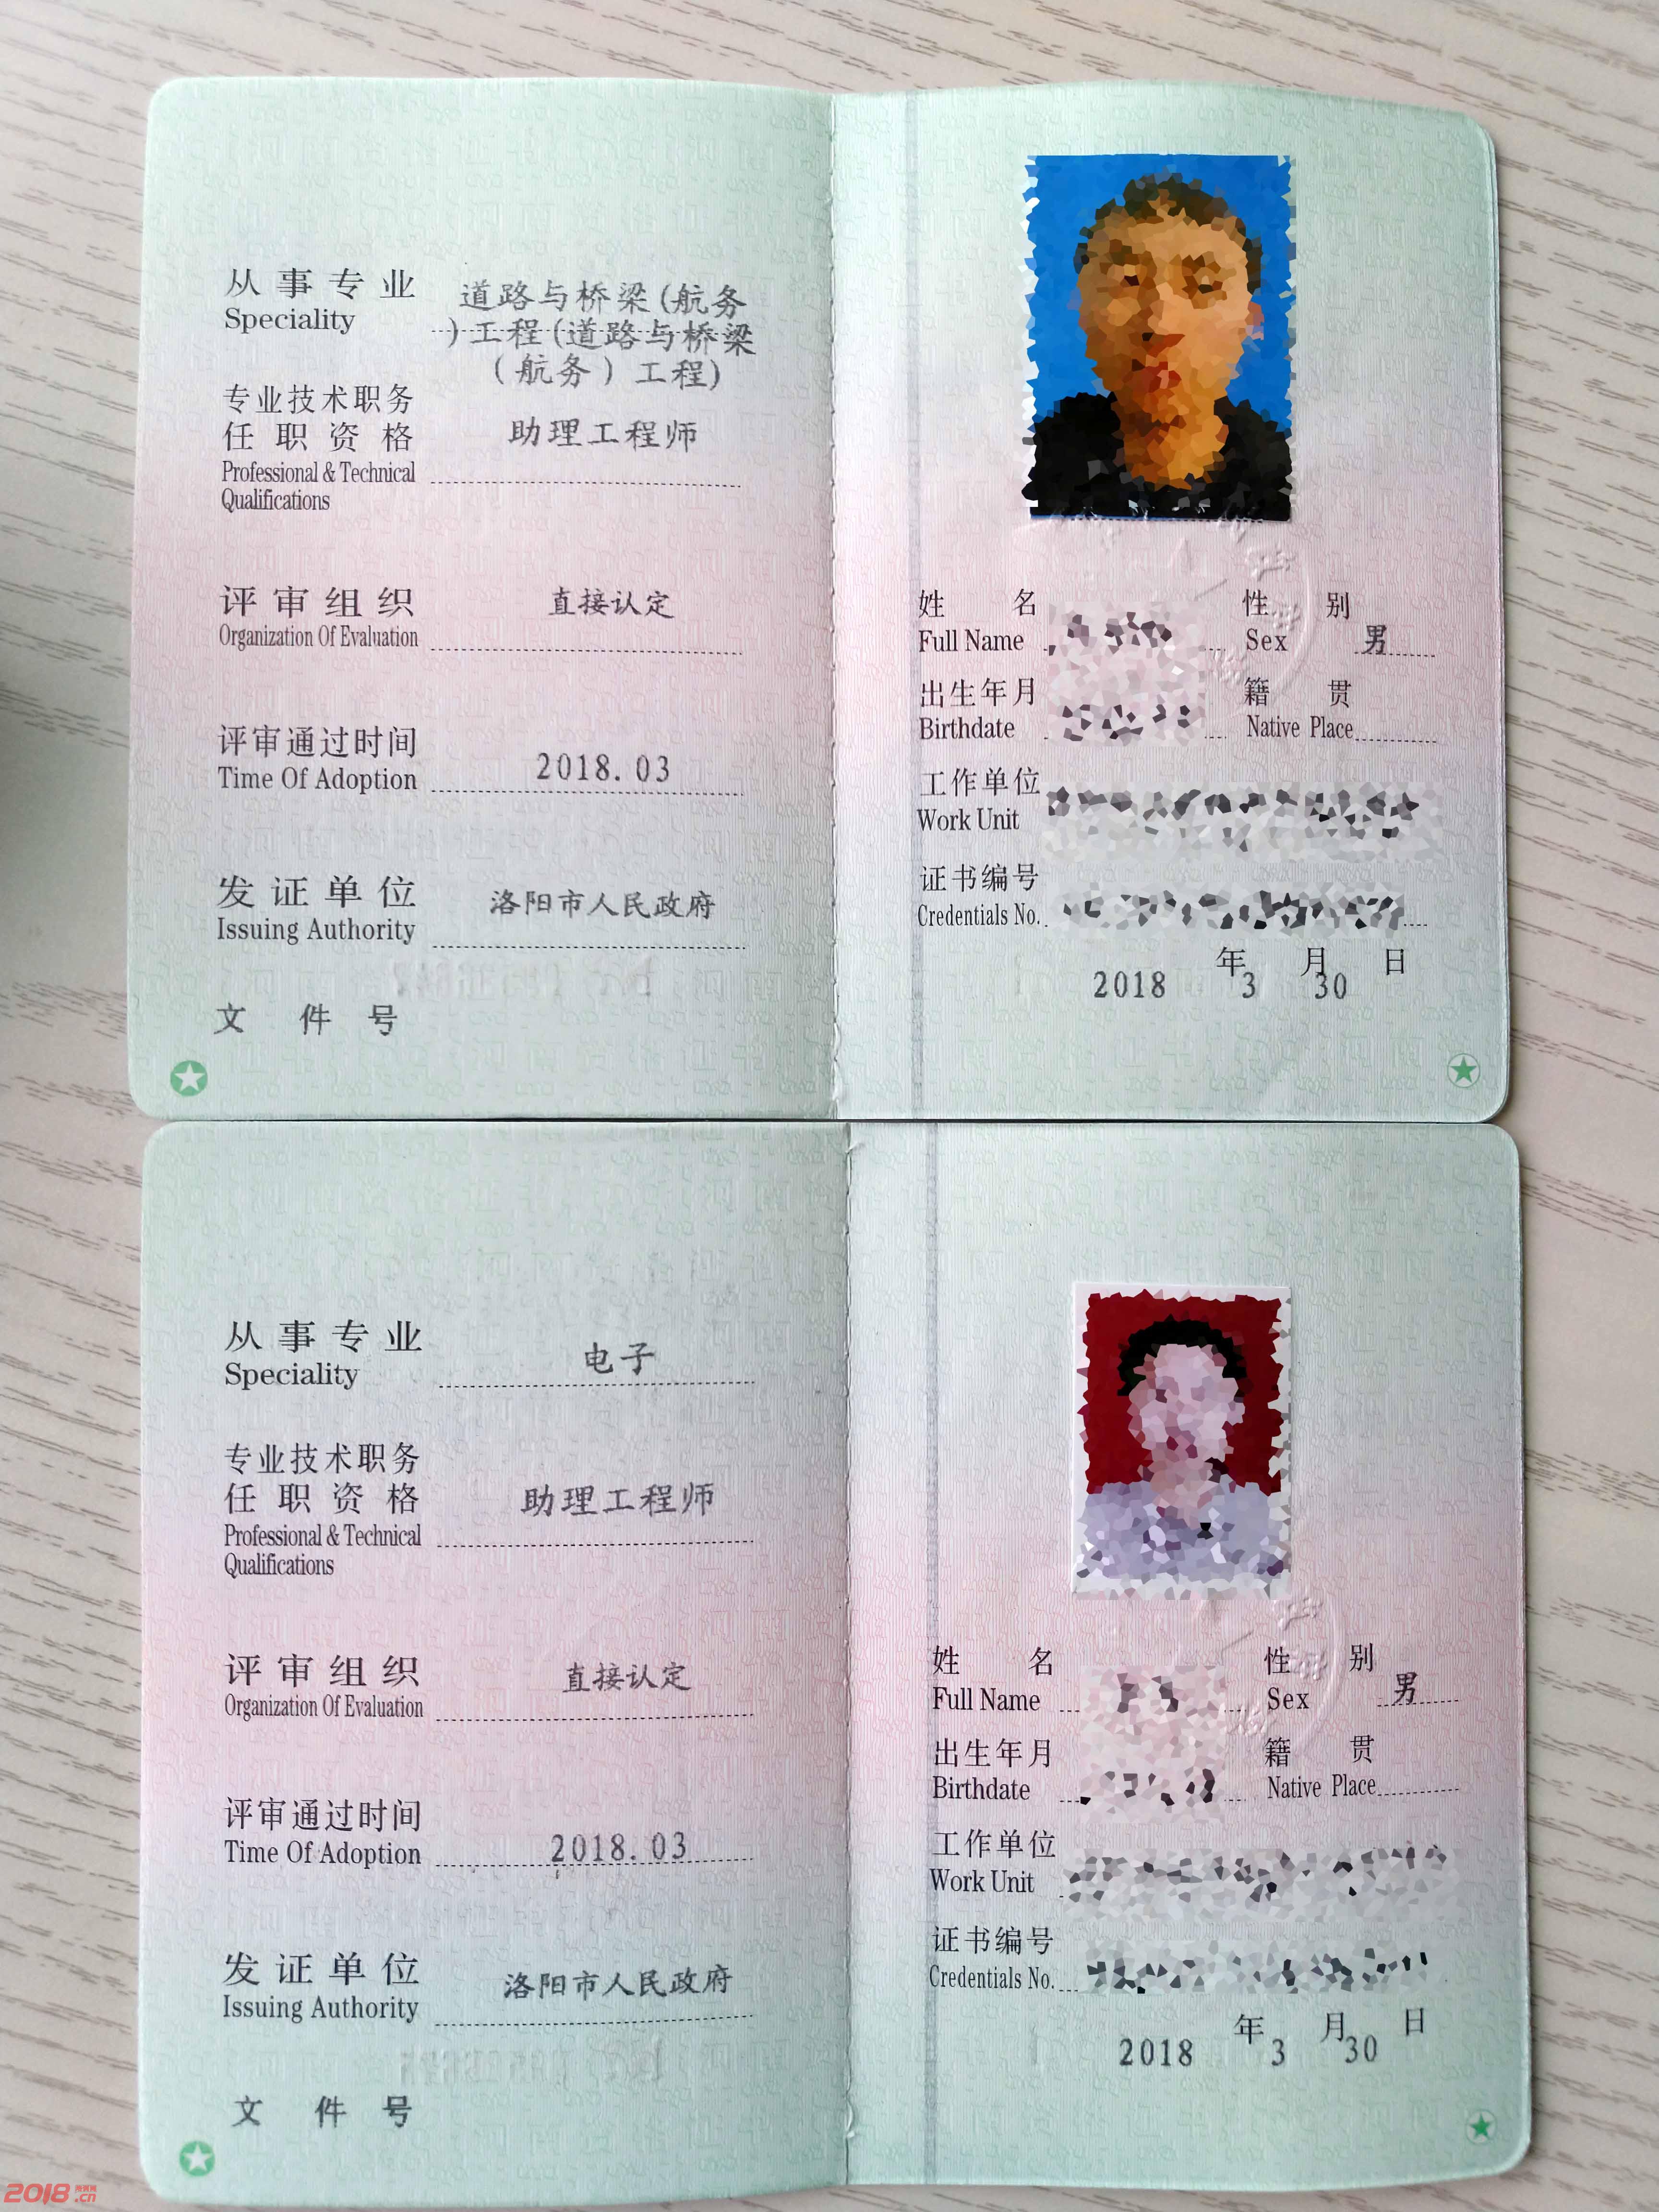 从事专业
Speciality
道路与桥梁(航务
)工程(道路与桥梁
(航务)工程)
专业技术职务
任职资格
助理工程师
Professional & Technical
Qualifications
评审组织
直接认定
Organization Of Evaluation
评审通过时间
Time Of Adoption
2018.03
发证单位
洛阳市人民政府
Issuing Authority
文件号
姓名
Full Name
性别
Sex
男
出生年月
Birthdate
籍贯
Native Place
工作单位
Work Unit
证书编号
Credentials No.
年 月 日
2018 3 30
从事专业
Speciality
电子
专业技术职务
任职资格
助理工程师
Professional & Technical
Qualifications
评审组织
直接认定
Organization Of Evaluation
评审通过时间
Time Of Adoption
2018.03
发证单位
洛阳市人民政府
Issuing Authority
文件号
姓名
Full Name
性别
Sex
男
出生年月
Birthdate
籍贯
Native Place
工作单位
Work Unit
证书编号
Credentials No.
年 月 日
2018 3 30
2018.cn